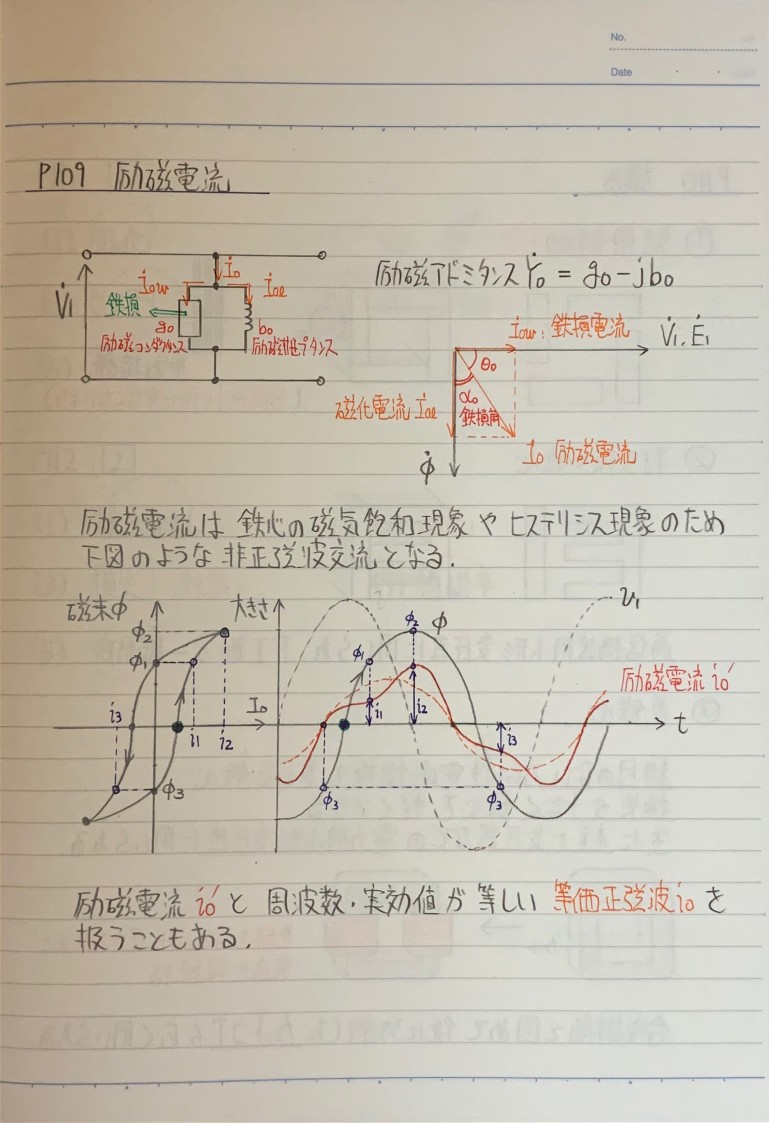 No.
Date
P109 励磁電流
İ₀
İ₀w
İ₀l
V̇₁
鉄損
g₀
b₀
励磁コンダクタンス
励磁サセプタンス
励磁アドミタンス Ẏ₀ = g₀ - jb₀
İ₀w: 鉄損電流
V̇₁, Ė₁
θ₀
α₀
鉄損角
磁化電流 İ₀l
İ₀ 励磁電流
φ̇
励磁電流は 鉄心の磁気飽和現象や ヒステリシス現象のため
下図のような非正弦波交流となる.
磁束φ
φ₂
φ₁
i₃
I₀
i₁
i₂
φ₃
大きさ
v₁
φ₂
φ
φ₁
励磁電流 i₀'
i₁
i₂
i₃
t
φ₃
φ₃
励磁電流 i₀' と 周波数・実効値が等しい 等価正弦波 i₀ を
扱うこともある.